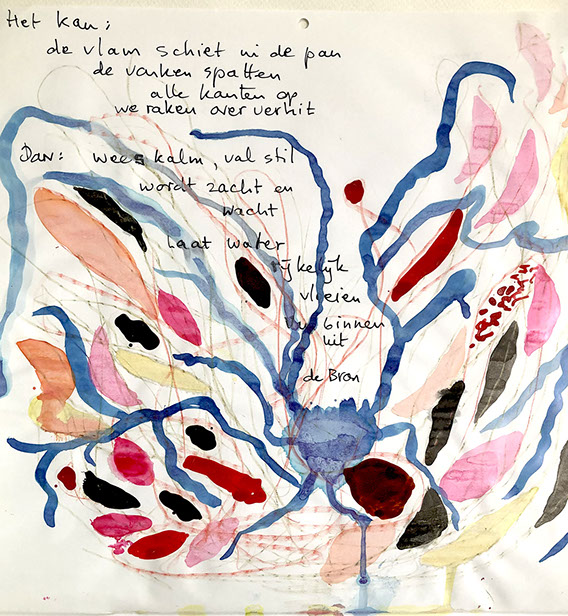 Het kan:
de vlam schiet in de pan
de vonken spatten
alle kanten op
we raken over verhit
Dan: wees kalm, val stil
wordt zacht en
wacht
laat water
rijkelijk
vloeien
van binnen
uit
de Bron